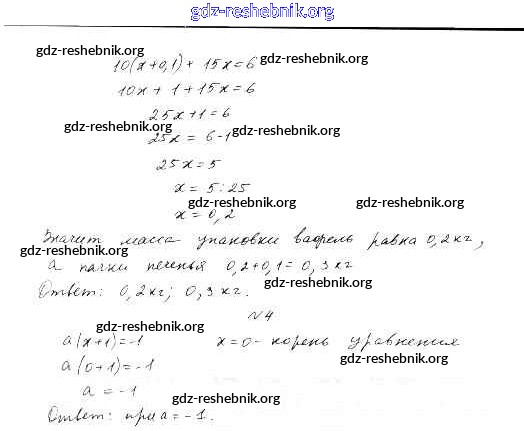 gdz-reshebnik.org
gdz-reshebnik.org
10(x+0,1) + 15x=6 gdz-reshebnik.org
10x + 1 + 15x = 6
25x+1=6
gdz-reshebnik.org
25x = 6-1 gdz-reshebnik.org
25x = 5
x = 5:25
gdz-reshebnik.org gdz-reshebnik.org
x = 0,2
Значит масса упаковки вафель равна 0,2кг,
gdz-reshebnik.org
а пачки печенья 0,2+0,1=0,3кг
gdz-reshebnik.org
Ответ: 0,2кг; 0,3кг.
№4
gdz-reshebnik.org
a(x+1)=-1 x=0- корень уравнения
gdz-reshebnik.org
a(0+1)=-1
a = -1
gdz-reshebnik.org
Ответ: при a=-1.